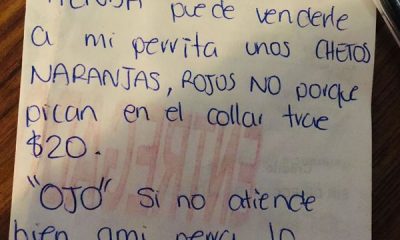 TIENDA puede venderle
a mi perrita unos CHETOS
NARANJAS, ROJOS NO porque
pican en el collar trae
$20.
"OJO" Si no atiende
bien ami perra lo
ENTREGADO